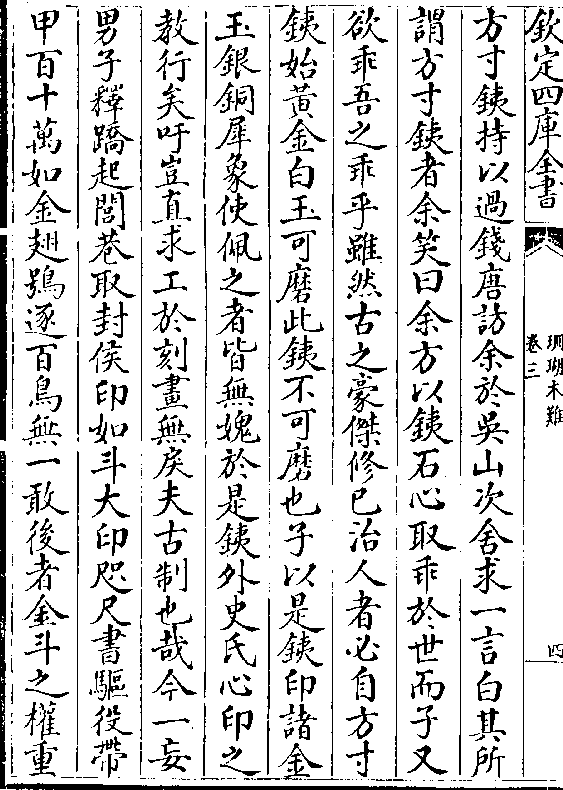 欽定四庫全書
珊瑚木難
卷三
四
方寸銕持以過錢唐訪余於吳山次舍求一言白其所
謂方寸銕者余笑曰余方以銕石心取乖於世而子又
欲乖吾之乖乎雖然古之豪傑修已治人者必自方寸
銕始黄金白玉可磨此銕不可磨也子以是銕印諸金
玉銀銅犀象使佩之者皆無媿於是銕外史氏心印之
教行矣吁豈直求工於刻畫無戾夫古制也哉今一妄
男子釋蹻起閭巷取封侯印如斗大印咫尺書驅役帶
甲百十萬如金翅鴞逐百鳥無一敢後者金斗之權重